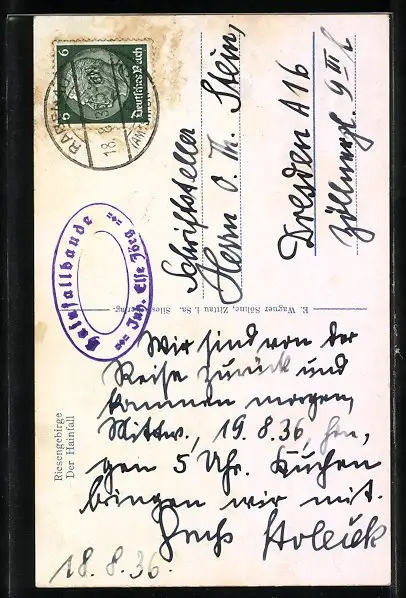 6
6
Deutsches Reich
18.8.36
Hainfallbaude
Inh. Else Berg
Schriftsteller
Herrn O. Th. Stein,
Dresden A 16
Zöllnerpl. 9 III l
E. Wagner Söhne, Zittau i. Sa.
Riesengebirge
Der Hainfall
Wir sind von der
Reise zurück und
kommen morgen,
Mittw., 19.8.36,
gen 5 Uhr. Kuchen
bringen wir mit.
18.8.36.